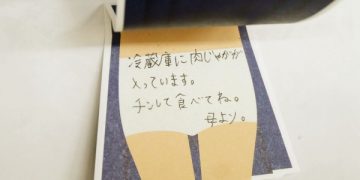 冷蔵庫に肉じゃがが
入っています。
チンして食べてね。
母より。